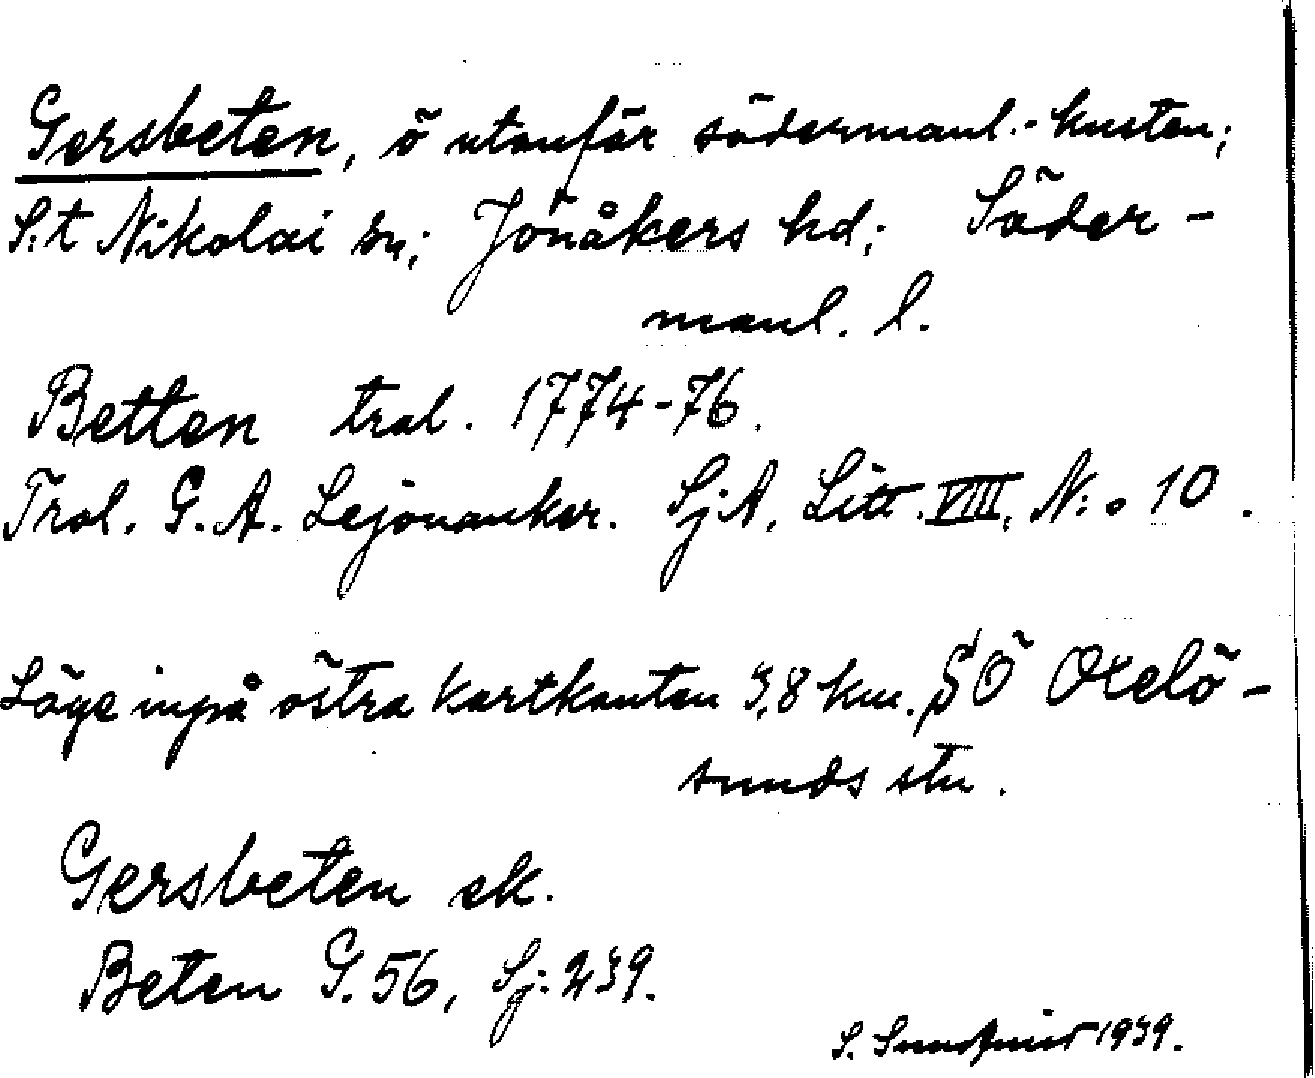 Gersbeten, ö utanför södermanl.-kusten;
S:t Nikolai sn; Jönåkers hd; Söder-
manl. l.
Betten tral. 1774-76.
Tral. G. A. Lejonanker. SjA, Litt. VIII, N:o 10.
Läge inpå östra kartkanten 3,8 km. SÖ Oxelö-
sunds stn.
Gersbeten ek.
Beten G. 56, Sj: 239.
S. 1939.